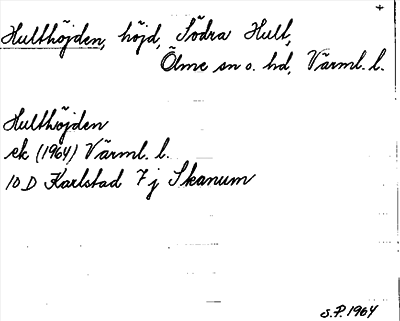 +
Hulthöjden, höjd, Södra Hult,
Ölme sn o. hd, Värml. l.
Hulthöjden
ek (1964) Värml. l.
10 D Karlstad 7 j Skanum
S.P. 1964